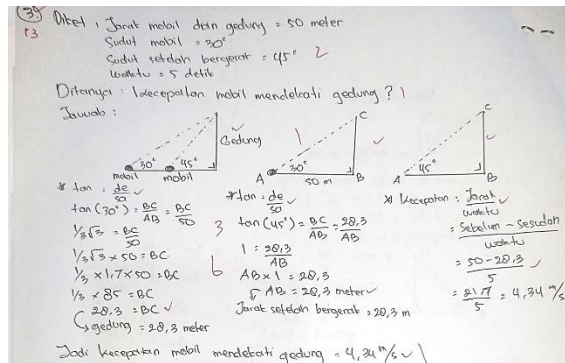 3.
13
Diket : Jarak mobil dan gedung = 50 meter
Sudut mobil = 30°
Sudut setelah bergerak = 45° 2
Waktu = 5 detik
Ditanya : kecepatan mobil mendekati gedung ? 1
Jawab :
Gedung
30° 45°
mobil mobil
1
C
30°
A 50 m B
C
45°
A B
* tan : de/sa
tan (30°) = BC/AB = BC/50
1/3√3 = BC/50
1/3√3 x 50 = BC
1/3 x 1,7 x 50 = BC
1/3 x 85 = BC
28,3 = BC
gedung = 28,3 meter
3
6
* tan = de/sa
tan (45°) = BC/AB = 28,3/AB
1 = 28,3/AB
AB x 1 = 28,3
AB = 28,3 meter
Jarak setelah bergerak = 28,3 m
* Kecepatan : Jarak/waktu
= Sebelum - Sesudah/waktu
= 50 - 28,3/5
= 21,7/5 = 4,34 m/s
Jadi kecepatan mobil mendekati gedung = 4,34 m/s 1